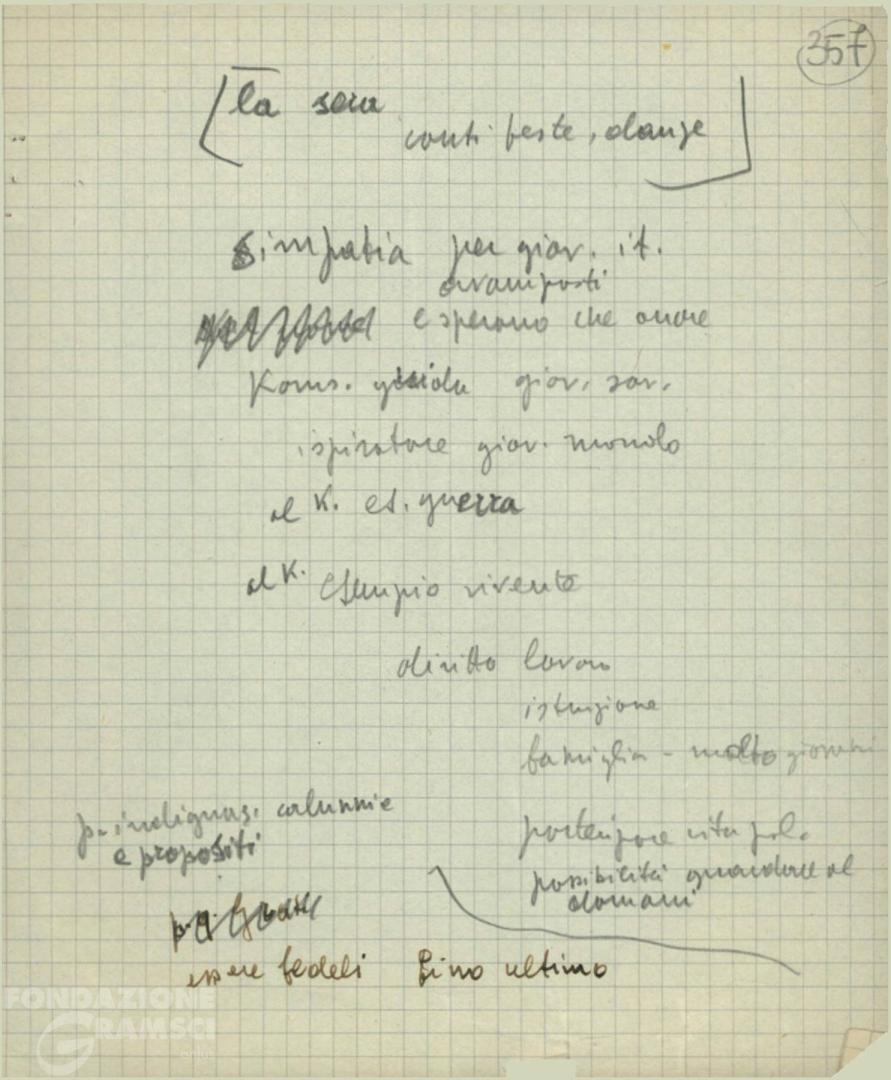 357
la sera
conti feste, danze
simpatia per giov. it.
avamposti
e sperono che anche
Koms. guida giov. sov.
ispiratore giov. mondo
al K. es. guerra
al K. esempio vivente
diritto lavoro
istruzione
famiglia - molto giovani
p. indignaz. calunnie
e propositi
partecipare vita pol.
possibilità guardare al
domani
essere fedeli fino ultimo
FONDAZIONE
GRAMSCI